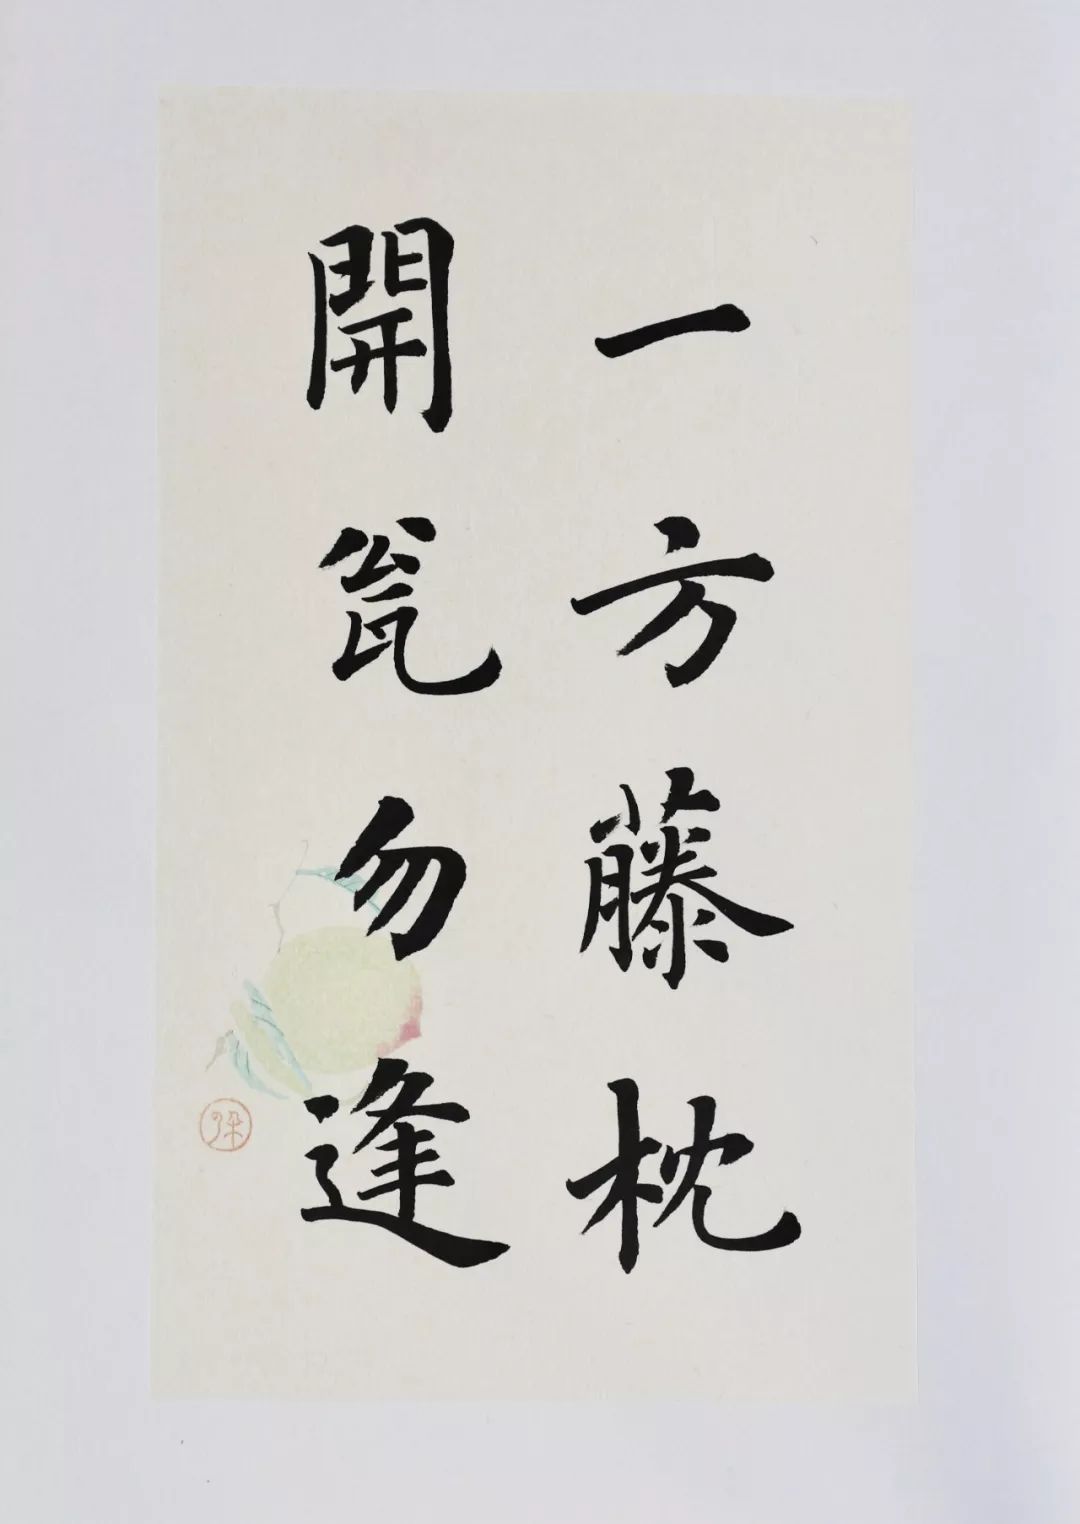 一方藤枕
開瓮勿逢